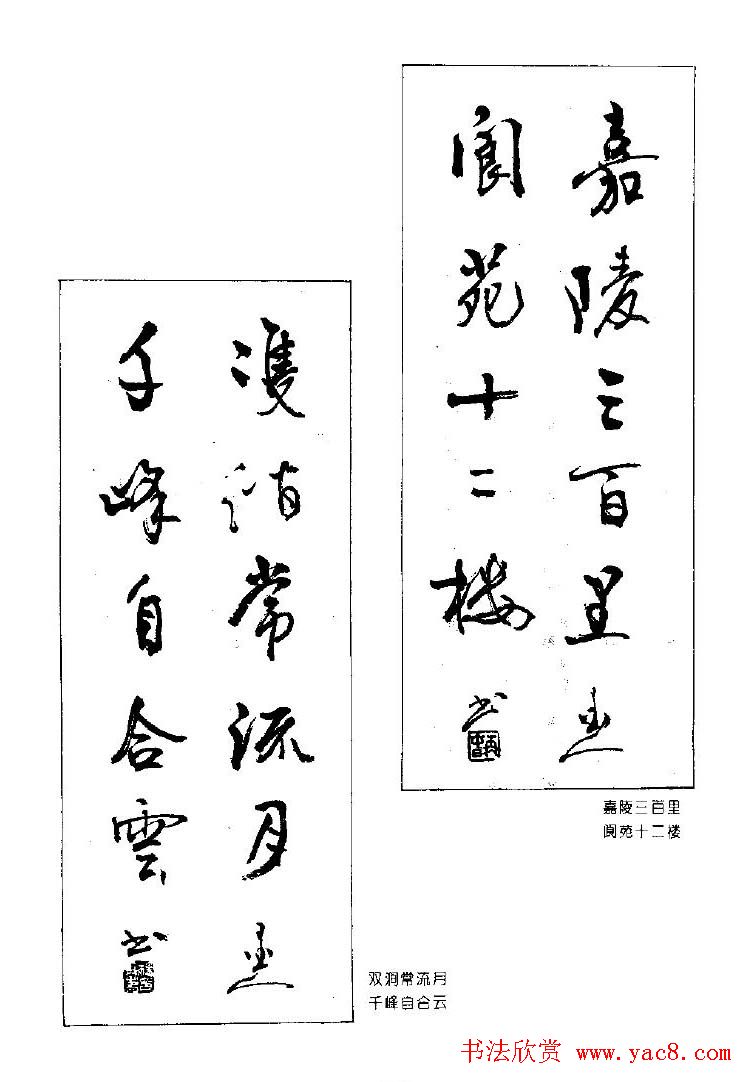 嘉陵三百里
閬苑十二楼
书
雙澗常流月
千峰自合雲
书
嘉陵三百里
阆苑十二楼
双涧常流月
千峰自合云
书法欣赏 www.yac8.com